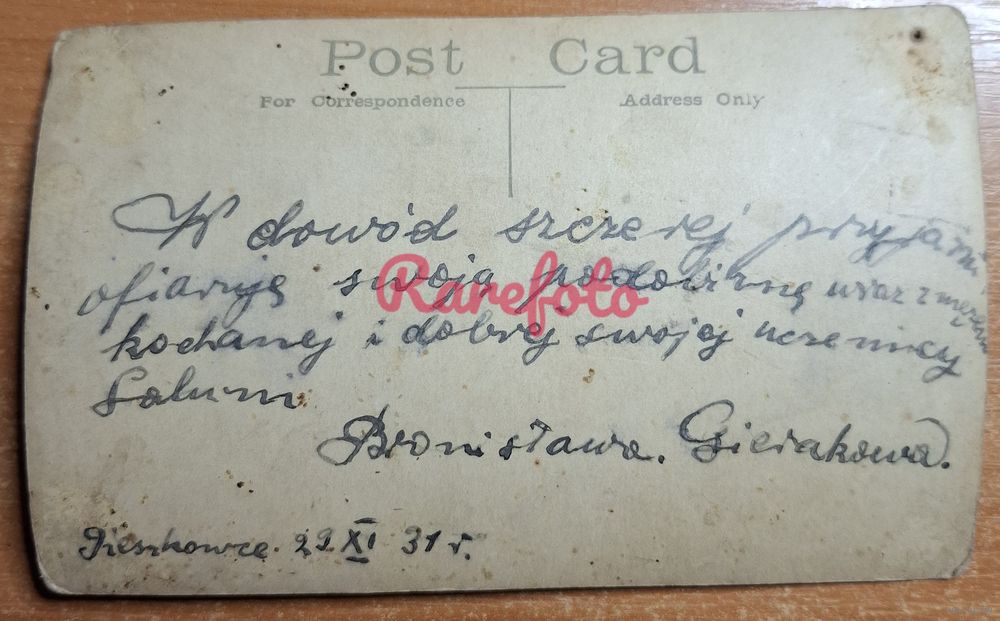 Post Card
For Correspondence Address Only
W dowód szczerej przyjaźni
ofiaruję swoją podobiznę wraz z mężem
kochanej i dobrej swojej uczennicy
Rarefoto
Bronisława.
29 XI 31 r.